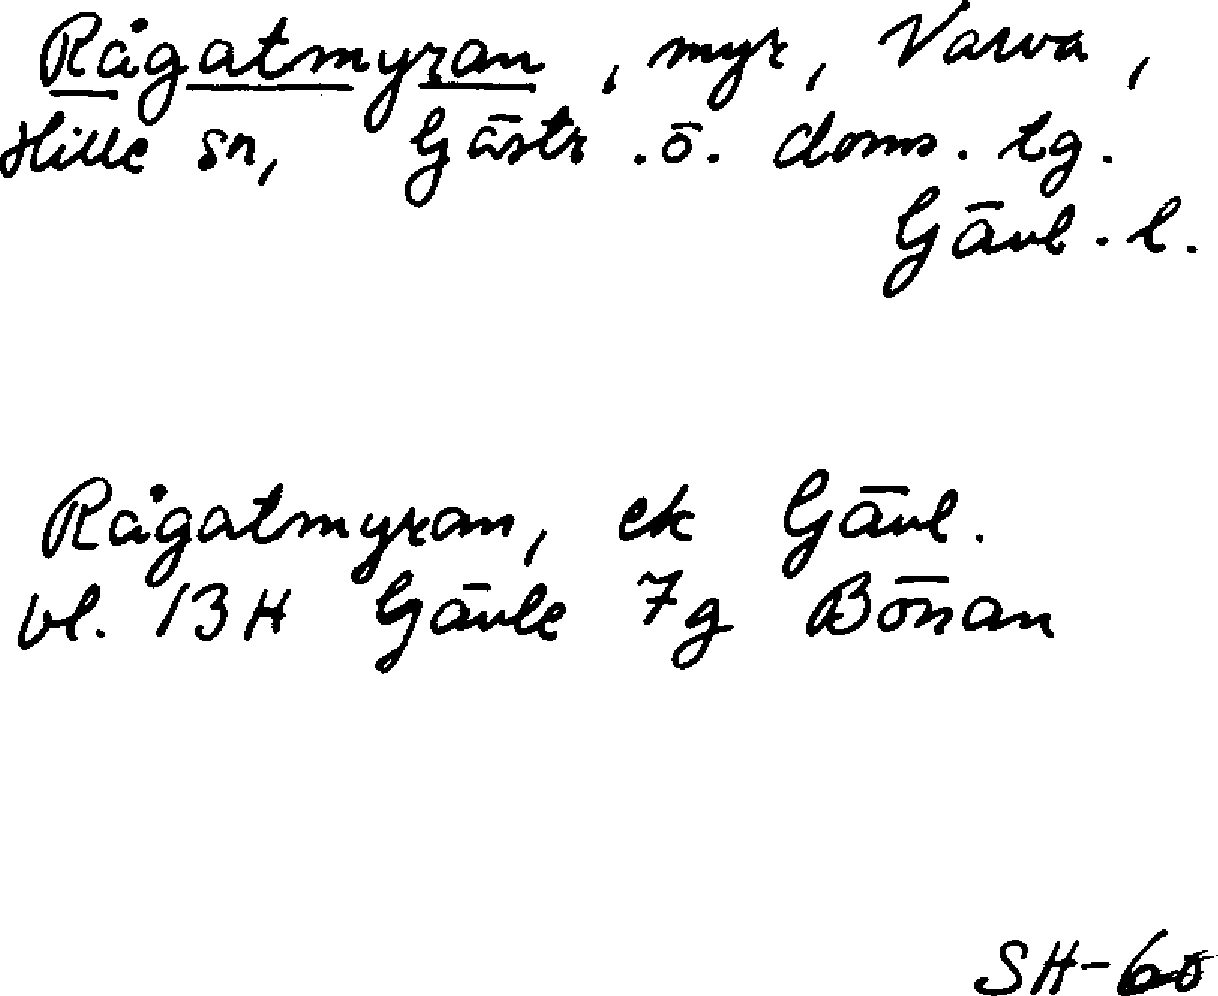 Rågatmyran, myr, Varva,
Hille sn, Gästr. ö. doms. tg.
Gävl. l.
Rågatmyran, ek Gävl.
bl. 13H Gävle 7g Bönan